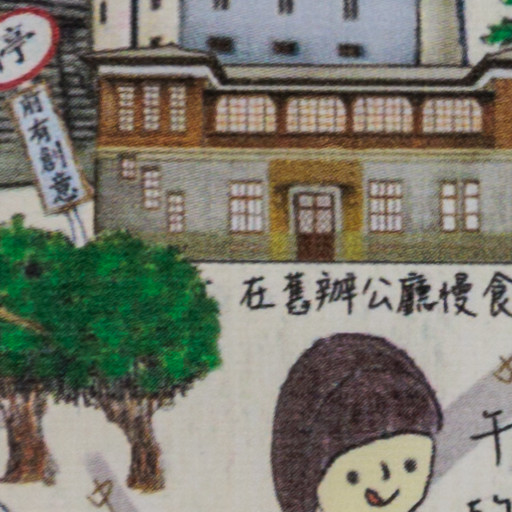 停
前有創意
在舊辦公廳慢食
午